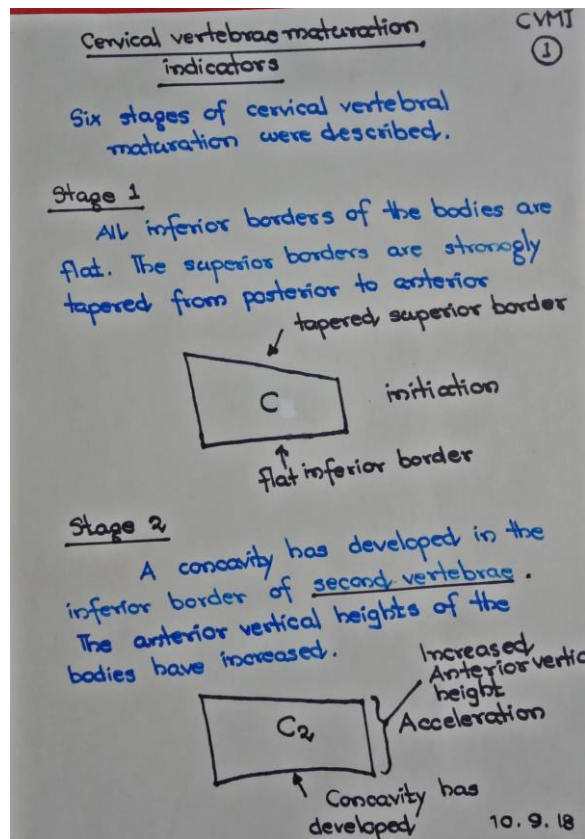 CVMI
1
Cervical vertebrae maturation
indicators
Six stages of cervical vertebral
maturation were described.
Stage 1
All inferior borders of the bodies are
flat. The superior borders are strongly
tapered from posterior to anterior
tapered superior border
C
initiation
flat inferior border
Stage 2
A concavity has developed in the
inferior border of second vertebrae.
The anterior vertical heights of the
bodies have increased.
Increased
Anterior vertic
height
Acceleration
C2
Concavity has
developed
10.9.18